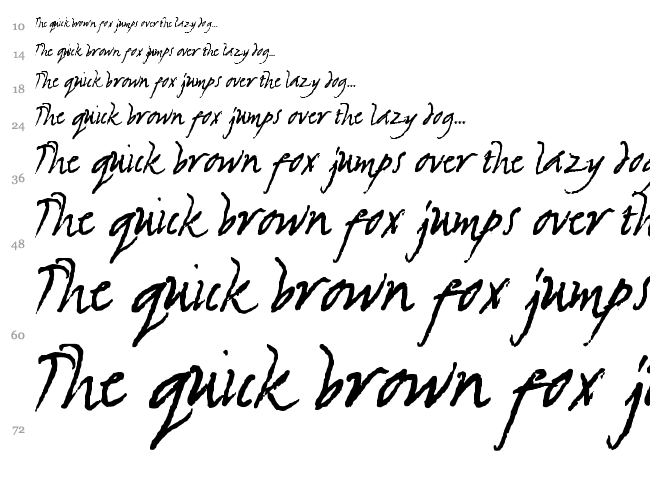 10 The quick brown fox jumps over the lazy dog...
14 The quick brown fox jumps over the lazy dog...
18 The quick brown fox jumps over the lazy dog...
24 The quick brown fox jumps over the lazy dog...
36 The quick brown fox jumps over the lazy dog
48 The quick brown fox jumps over th
60 The quick brown fox jumps
72 The quick brown fox j